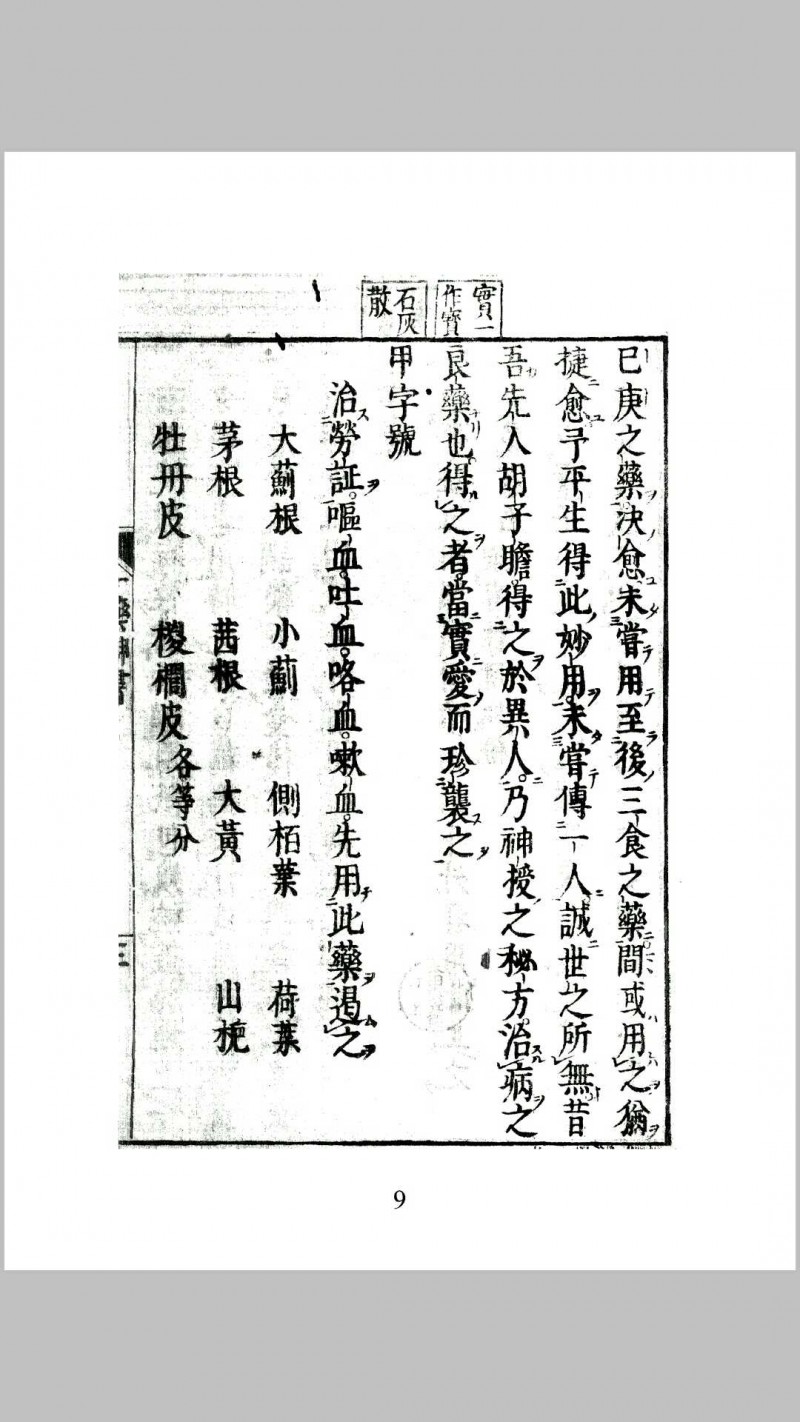 實一
作寶
石灰
散
已庚之藥決愈未嘗用至後三食之藥間或用之猶
捷愈予平生得此妙用未嘗傳一人誠世之所無昔
吾先人胡子瞻得之於異人乃神授之秘方治病之
良藥也得之者當實愛而珍襲之
甲字號
治勞証嘔血吐血咯血嗽血先用此藥遏之
大薊根 小薊 側栢葉 荷葉
茅根 茜根 大黃 山梔
牡丹皮 椶櫚皮各等分
三
9